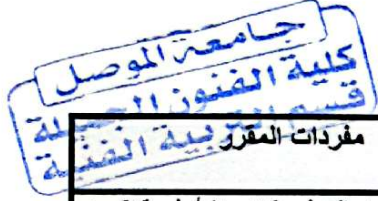 جامعة الموصل
كلية الفنون الجميلة
قسم التربية الفنية
مفردات المقرر